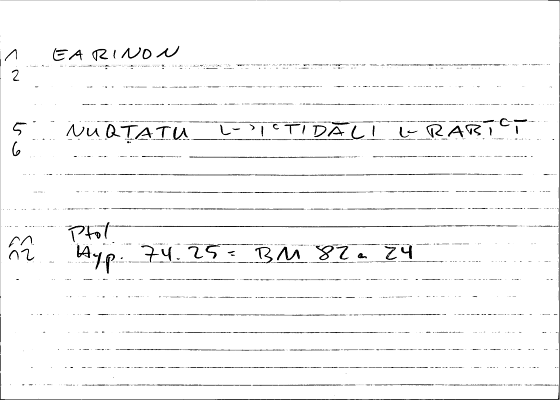 1 EARINON
2
5 NUQṬATU L-ʾIʿTIDĀLI L-RABĪʿĪ
6
11 Ptol.
12 Hyp. 74.25 = BM 82 a 24